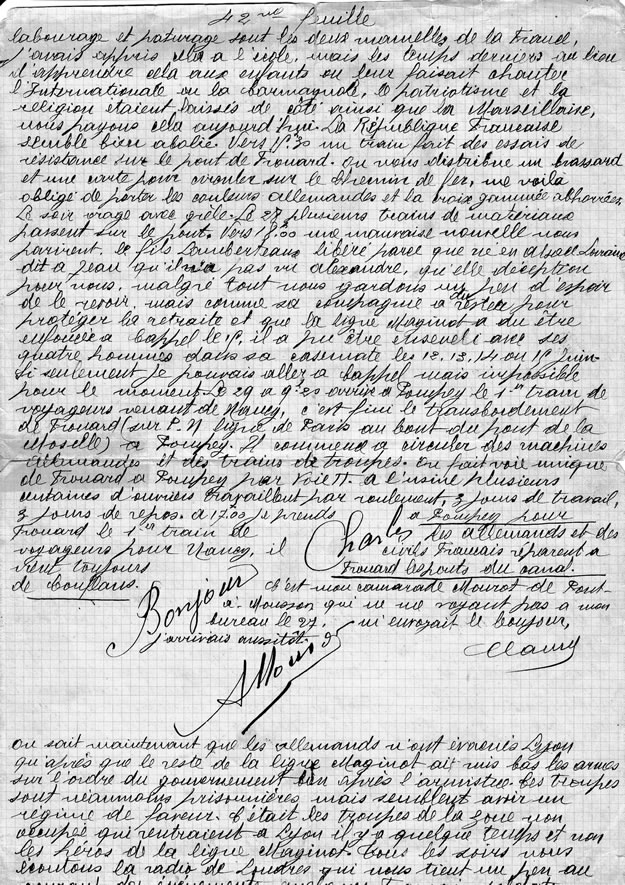 42me feuille
labourage et paturage sont les deux mamelles de la France,
j'avais appris cela a l'école, mais les temps derniers au lieu
d'apprendre cela aux enfants on leur faisait chanter
l'Internationale ou la Carmagnole, le patriotisme et la
religion étaient laissés de côté ainsi que la Marseillaise,
nous payons cela aujourd'hui. La République Francaise
semble bien abolie. Vers 15h30 un train fait des essais de
résistance sur le pont de Frouard. On nous distribue un brassard
et une carte pour circuler sur le Chemin de fer, me voila
obligé de porter les couleurs allemandes et la croix gammée abhorrée.
Le soir orage avec grêle. Le 27 plusieurs trains de matériaux
passent sur le pont. Vers 17h00 une mauvaise nouvelle nous
parvient. le fils Lamberteaux libéré parce que né en Alsace Lorraine
dit a Jean qu'il n'a pas vu Alexandre, qu'elle déception
pour nous. malgré tout nous gardons un peu d'espoir
de le revoir. mais comme sa compagnie a du rester pour
protéger la retraite et que la ligne Maginot a du être
enfoncée a Cappel le 15, il a pu être enseveli avec ses
quatre hommes dans sa casemate les 12.13.14 ou 15 juin.
Si seulement je pouvais aller a Cappel mais impossible
pour le moment. Le 29 a 9h20 arrive a Pompey le 1er train de
voyageurs venant de Nancy, c'est fini le transbordement
de Frouard (sur P.N ligne de Paris au bout du pont de la
Moselle) a Pompey. Il commence a circuler des machines
Allemandes et des trains de troupes. On fait voie unique
de Frouard a Pompey par Voie II. a l'usine plusieurs
centaines d'ouvriers travaillent par roulement, 3 jours de travail,
3 jours de repos. a 17h00 je prends a Pompey pour
Frouard le 1er train de
voyageurs pour Nancy, il
vient toujours
de Conflans.
Charly
les allemands et des
civils Francais réparent a
Frouard les ponts du canal.
Bonjour
C'est mon camarade Mourot de Pont-
a-Mousson qui ne me voyant pas a mon
bureau le 27, m'envoyait le bonjour,
j'arrivais aussitôt.
AMourot
on sait maintenant que les allemands n'ont évacués Lyon
qu'après que le reste de la ligne Maginot ait mis bas les armes
sur l'ordre du gouvernement après l'armistice. Ces troupes
sont néanmoins prisonnières mais semblent avoir un
régime de faveur. C'était les troupes de la zone non
occupée qui rentraient a Lyon il y a quelque temps et non
les héros de la ligne Maginot. Tous les soirs nous
écoutons la radio de Londres qui nous tient un peu au
courant des événements